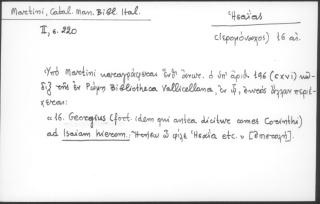 Martini, Catal. Man. Bibl. Ital.
II, σ. 220
Ἡσαΐας
(ἱερομόναχος) 16 αἰ.
Ὑπὸ Martini καταγράφεται ἐνθ' ἀνωτ. ὁ ὑπ' ἀριθ. 186 (CXVI) κῶ-
διξ τῆς ἐν Ρώμῃ Bibliotheca Vallicellana, ἐν ᾧ, ἐκτὸς ἄλλων περιέ-
χεται:
« 16. Georgius (fort. idem qui antea dicitur comes Corinthi)
ad Isaiam hierom. ὦ φίλε Ἡσαΐα etc. » [ἐπιστολή].